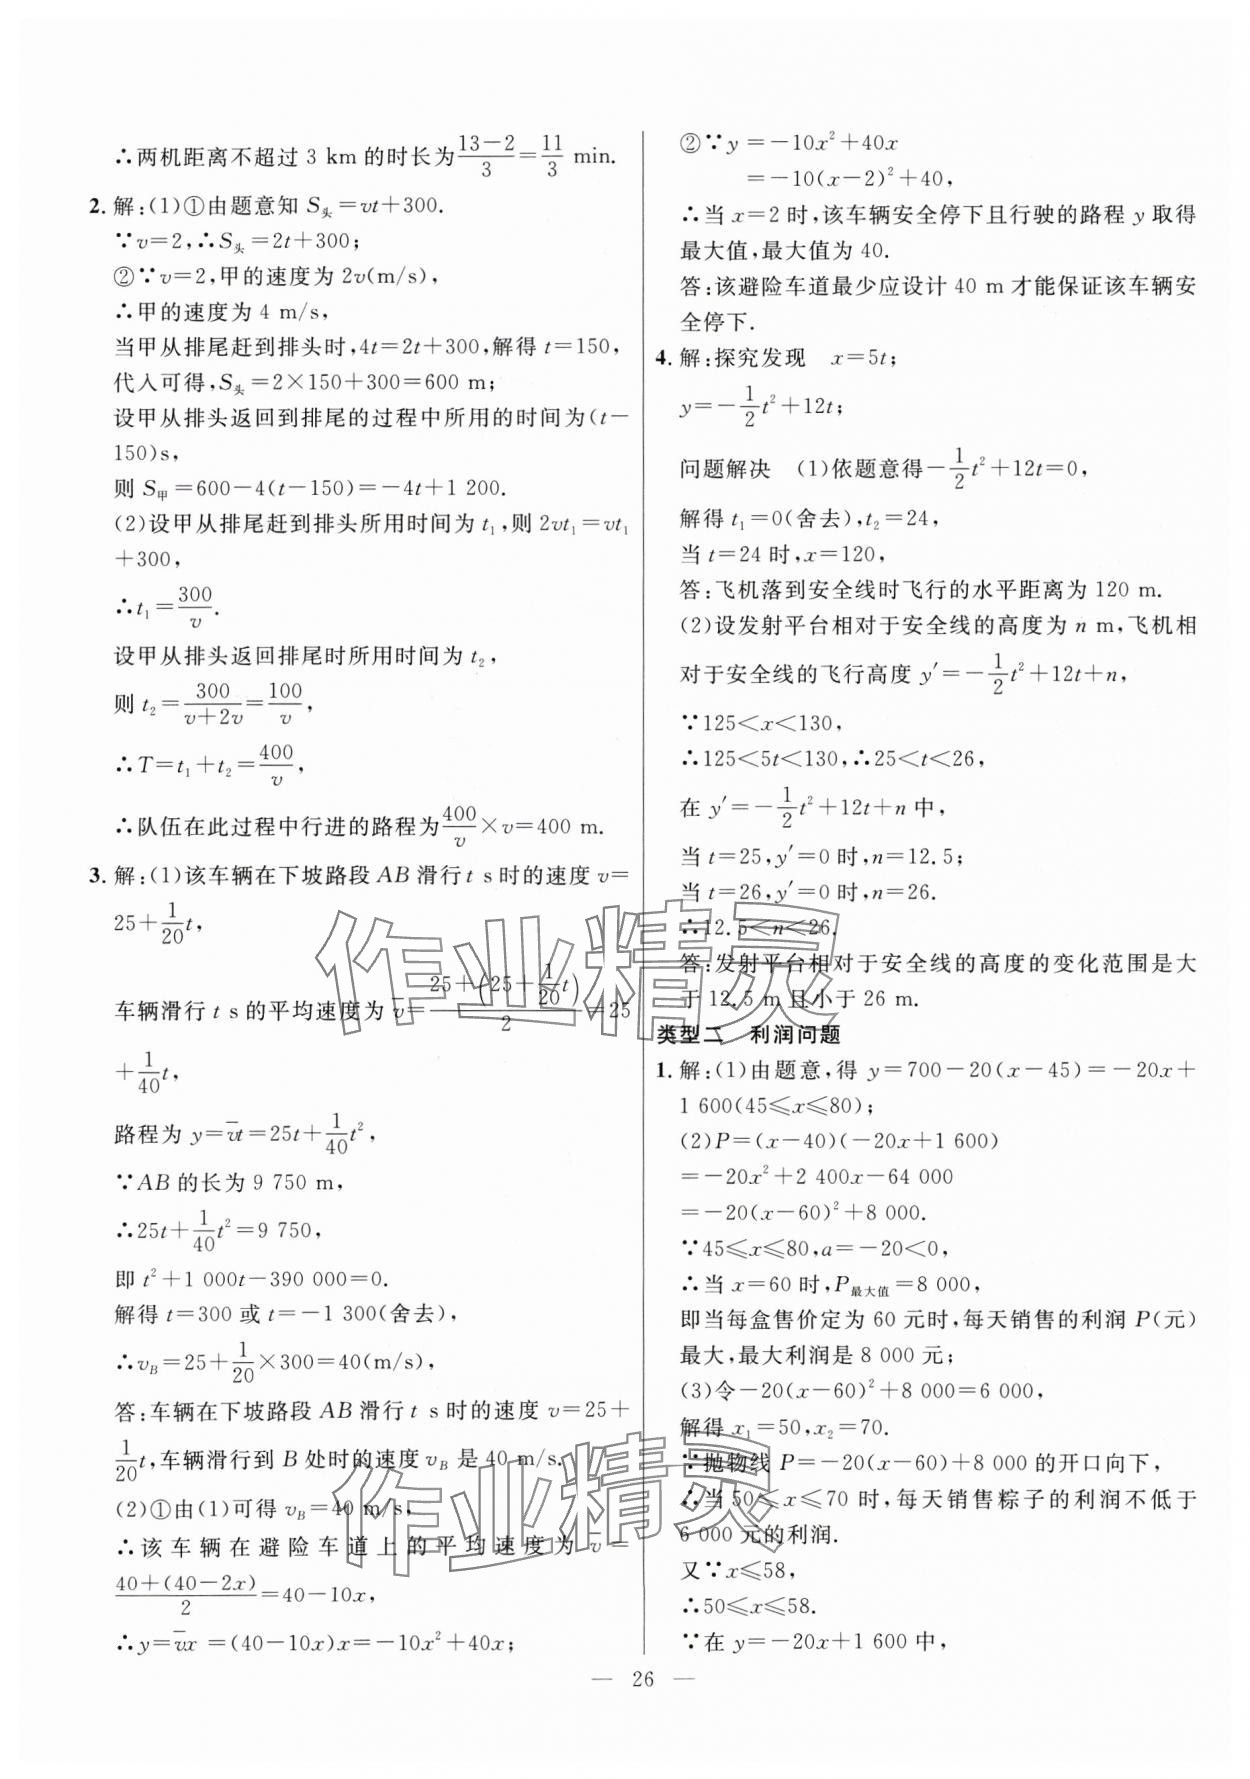 ∴两机距离不超过 3 km 的时长为$\frac{13-2}{3}=\frac{11}{3}$ min.
2. 解:(1)①由题意知 $S_头$=vt+300.
∵v=2,∴$S_头$=2t+300;
②∵v=2,甲的速度为 2v(m/s),
∴甲的速度为 4 m/s,
当甲从排尾赶到排头时,4t=2t+300,解得 t=150,
代入可得,$S_头$=2×150+300=600 m;
设甲从排头返回到排尾的过程中所用的时间为(t-
150)s,
则 $S_甲$=600-4(t-150)=-4t+1 200.
(2)设甲从排尾赶到排头所用时间为 $t_1$,则 2v$t_1$=v$t_1$
+300,
∴$t_1=\frac{300}{v}$.
设甲从排头返回排尾时所用时间为 $t_2$,
则 $t_2=\frac{300}{v+2v}=\frac{100}{v}$,
∴$T=t_1+t_2=\frac{400}{v}$,
∴队伍在此过程中行进的路程为$\frac{400}{v}$×v=400 m.
3. 解:(1)该车辆在下坡路段 AB 滑行 t s 时的速度 v=
25+$\frac{1}{20}$t,
车辆滑行 t s 的平均速度为 $\overline{v}=\frac{25+\left(25+\frac{1}{20}t\right)}{2}$=25
+$\frac{1}{40}$t,
路程为 y=$\overline{v}$t=25t+$\frac{1}{40}t^2$,
∵AB 的长为 9 750 m,
∴25t+$\frac{1}{40}t^2$=9 750,
即 $t^2$+1 000t-390 000=0.
解得 t=300 或 t=-1 300(舍去),
∴$v_B$=25+$\frac{1}{20}$×300=40(m/s),
答:车辆在下坡路段 AB 滑行 t s 时的速度 v=25+
$\frac{1}{20}$t,车辆滑行到 B 处时的速度 $v_B$ 是 40 m/s.
(2)①由(1)可得 $v_B$=40 m/s,
∴该车辆在避险车道上的平均速度为 $\overline{v}$=
$\frac{40+(40-2x)}{2}$=40-10x,
∴y=$\overline{v}$x=(40-10x)x=-10$x^2$+40x;
②∵y=-10$x^2$+40x
=-10(x-2)$^2$+40,
∴当 x=2 时,该车辆安全停下且行驶的路程 y 取得
最大值,最大值为 40.
答:该避险车道最少应设计 40 m 才能保证该车辆安
全停下.
4. 解:探究发现 x=5t;
y=-$\frac{1}{2}t^2$+12t;
问题解决 (1)依题意得-$\frac{1}{2}t^2$+12t=0,
解得 $t_1$=0(舍去),$t_2$=24,
当 t=24 时,x=120,
答:飞机落到安全线时飞行的水平距离为 120 m.
(2)设发射平台相对于安全线的高度为 n m,飞机相
对于安全线的飞行高度 y′=-$\frac{1}{2}t^2$+12t+n,
∵125<x<130,
∴125<5t<130,∴25<t<26,
在 y′=-$\frac{1}{2}t^2$+12t+n 中,
当 t=25,y′=0 时,n=12.5;
当 t=26,y′=0 时,n=26.
∴12.5<n<26.
答:发射平台相对于安全线的高度的变化范围是大
于 12.5 m 且小于 26 m.
类型二 利润问题
1. 解:(1)由题意,得 y=700-20(x-45)=-20x+
1 600(45≤x≤80);
(2)P=(x-40)(-20x+1 600)
=-20$x^2$+2 400x-64 000
=-20(x-60)$^2$+8 000.
∵45≤x≤80,a=-20<0,
∴当 x=60 时,$P_{最大值}$=8 000,
即当每盒售价定为 60 元时,每天销售的利润 P(元)
最大,最大利润是 8 000 元;
(3)令-20(x-60)$^2$+8 000=6 000,
解得 $x_1$=50,$x_2$=70.
∵抛物线 P=-20(x-60)$^2$+8 000 的开口向下,
∴当 50≤x≤70 时,每天销售粽子的利润不低于
6 000 元的利润.
又∵x≤58,
∴50≤x≤58.
∵在 y=-20x+1 600 中,
— 26 —
作业精灵
作业精灵